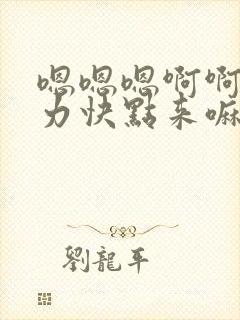 嗯嗯嗯啊啊
力快點来嘛
劉龍平